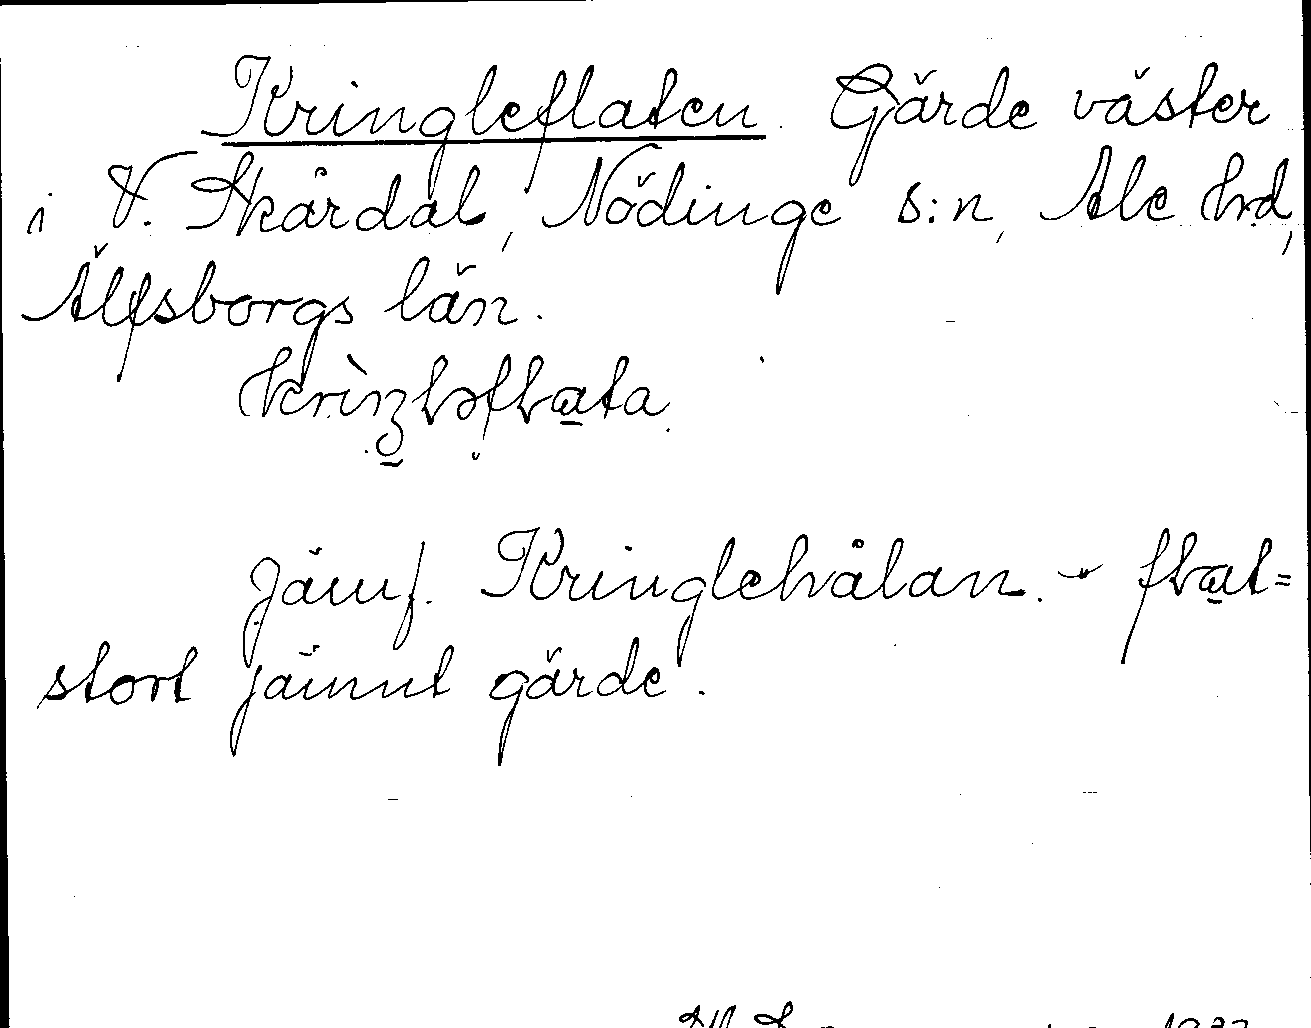 Kringleflaten. Gärde väster
i V. Skårdal, Nödinge s:n, Ale hrd,
Älfsborgs län.
Jämf. Kringlehålan. - flat =
stort jämnt gärde.